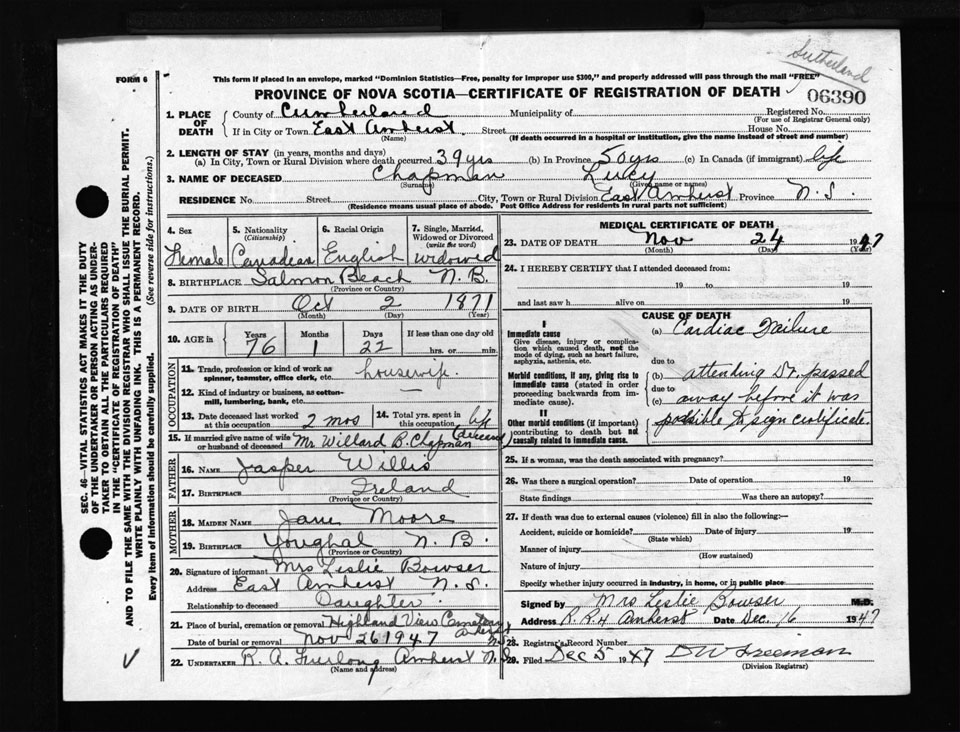 Sutherland
FORM 6
This form if placed in an envelope, marked "Dominion Statistics—Free, penalty for improper use $300," and properly addressed will pass through the mail "FREE"
PROVINCE OF NOVA SCOTIA—CERTIFICATE OF REGISTRATION OF DEATH
06390
1. PLACE OF DEATH
County of Cumberland Municipality of Registered No.
(For use of Registrar General only)
If in City or Town East Amherst Street House No.
(Name) (If death occurred in a hospital or institution, give the name instead of street and number)
2. LENGTH OF STAY (in years, months and days)
(a) In City, Town or Rural Division where death occurred 39 yrs (b) In Province 50 yrs (c) In Canada (if immigrant) life
3. NAME OF DECEASED Chapman Lucy
(Surname) (Given name or names)
RESIDENCE No. Street City, Town or Rural Division East Amherst Province N.S.
(Residence means usual place of abode. Post Office Address for residents in rural parts not sufficient)
4. Sex Female
5. Nationality (Citizenship) Canadian
6. Racial Origin English
7. Single, Married, Widowed or Divorced (write the word) widowed
8. BIRTHPLACE Salmon Beach N.B.
(Province or Country)
9. DATE OF BIRTH Oct 2 1871
(Month) (Day) (Year)
10. AGE in Years Months Days If less than one day old
76 1 22 hrs. or min.
OCCUPATION
11. Trade, profession or kind of work as spinner, teamster, office clerk, etc. housewife.
12. Kind of industry or business, as cotton-mill, lumbering, bank, etc. —
13. Date deceased last worked at this occupation 2 mos
14. Total yrs. spent in this occupation life
15. If married give name of wife or husband of deceased Mr Willard B. Chapman (deceased)
FATHER
16. NAME Jasper Willis
17. BIRTHPLACE Ireland
(Province or Country)
MOTHER
18. MAIDEN NAME Jane Moore
19. BIRTHPLACE Youghal N.B.
(Province or Country)
20. Signature of informant Mrs Leslie Bowser
Address East Amherst N.S.
Relationship to deceased Daughter
21. Place of burial, cremation or removal Highland View Cemetery Amherst N.S.
Date of burial or removal Nov 26 1947
22. UNDERTAKER R. A. Furlong Amherst N.S.
(Name and address)
MEDICAL CERTIFICATE OF DEATH
23. DATE OF DEATH Nov 24 1947
(Month) (Day) (Year)
24. I HEREBY CERTIFY that I attended deceased from:
19 to 19
and last saw h alive on 19
CAUSE OF DEATH
I
Immediate cause
Give disease, injury or complication which caused death, not the mode of dying, such as heart failure, asphyxia, asthenia, etc.
(a) Cardiac Failure
due to
Morbid conditions, if any, giving rise to immediate cause (stated in order proceeding backwards from immediate cause).
(b) attending Dr. passed
due to
(c) away before it was
II
Other morbid conditions (if important) contributing to death but not causally related to immediate cause.
possible to sign certificate.
25. If a woman, was the death associated with pregnancy?
26. Was there a surgical operation? Date of operation 19
State findings Was there an autopsy?
27. If death was due to external causes (violence) fill in also the following:—
Accident, suicide or homicide? Date of injury 19
(State which)
Manner of injury
(How sustained)
Nature of injury
Specify whether injury occurred in industry, in home, or in public place
Signed by Mrs Leslie Bowser M.D.
Address R.R. 4 Amherst Date Dec. 16 1947
28. Registrar's Record Number
29. Filed Dec 5 1947 D W Freeman
(Division Registrar)
SEC. 46—VITAL STATISTICS ACT MAKES IT THE DUTY
OF THE UNDERTAKER OR PERSON ACTING AS UNDER-
TAKER TO OBTAIN ALL THE PARTICULARS REQUIRED
IN THE "CERTIFICATE OF REGISTRATION OF DEATH"
AND TO FILE THE SAME WITH THE DIVISION REGISTRAR WHO SHALL ISSUE THE BURIAL PERMIT.
WRITE PLAINLY WITH UNFADING INK. THIS IS A PERMANENT RECORD.
Every item of information should be carefully supplied. (See reverse side for instructions.)